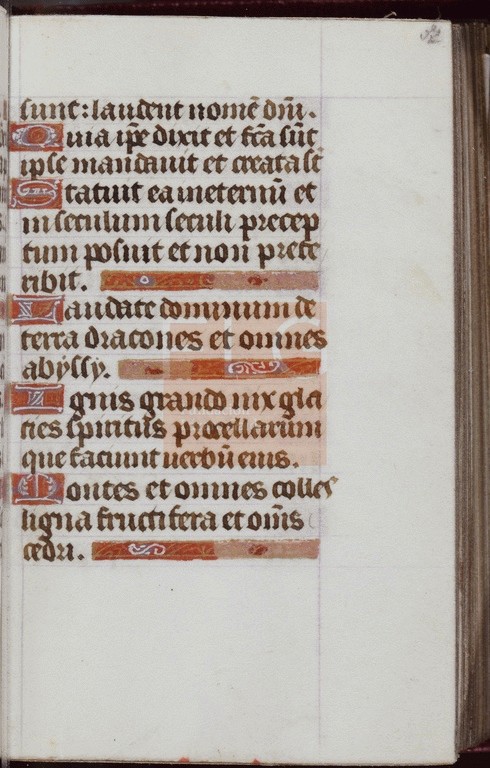 92
sunt: laudent nomē dm̄.
Quia ip̄e dixit et fc̄a sūt
ipse mandauit et creata st̄
Statuit ea ineternū et
in seculum seculi precep
tum posuit et non prete
ribit.
Laudate dominum de
terra dracones et omnes
abyssy.
Ignis grando nix gla
cies spiritus procellarum
que faciunt uerbū eius.
Montes et omnes colles
ligna fructifera et om̄s
cedri.